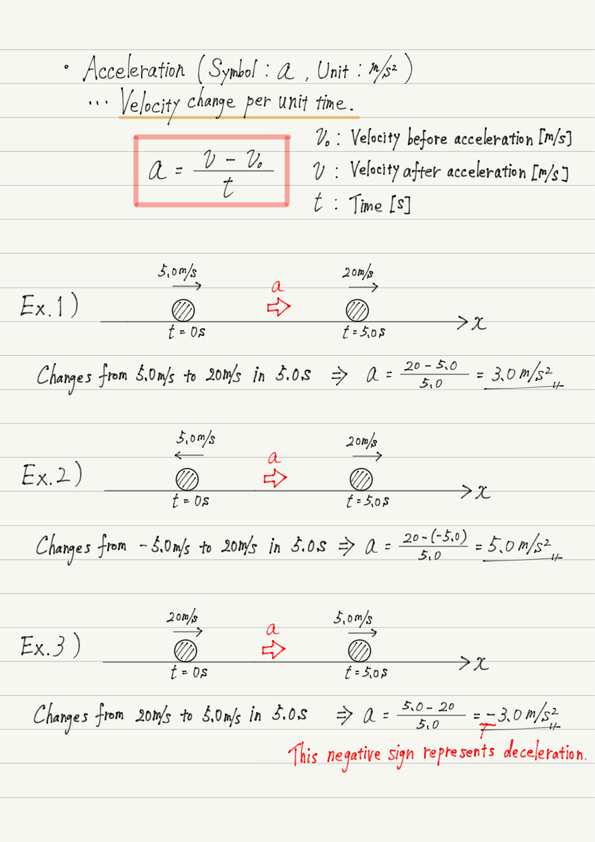 • Acceleration (Symbol : a , Unit : m/s²)
... Velocity change per unit time.
a = (v - v₀)/t
v₀ : Velocity before acceleration [m/s]
v : Velocity after acceleration [m/s]
t : Time [s]
5.0m/s 20m/s
Ex.1) a x
t = 0s t = 5.0s
Changes from 5.0m/s to 20m/s in 5.0s ⇒ a = (20 - 5.0)/5.0 = 3.0 m/s²
5.0m/s 20m/s
Ex.2) a x
t = 0s t = 5.0s
Changes from -5.0m/s to 20m/s in 5.0s ⇒ a = (20-(-5.0))/5.0 = 5.0 m/s²
20m/s 5.0m/s
Ex.3) a x
t = 0s t = 5.0s
Changes from 20m/s to 5.0m/s in 5.0s ⇒ a = (5.0 - 20)/5.0 = -3.0 m/s²
This negative sign represents deceleration.